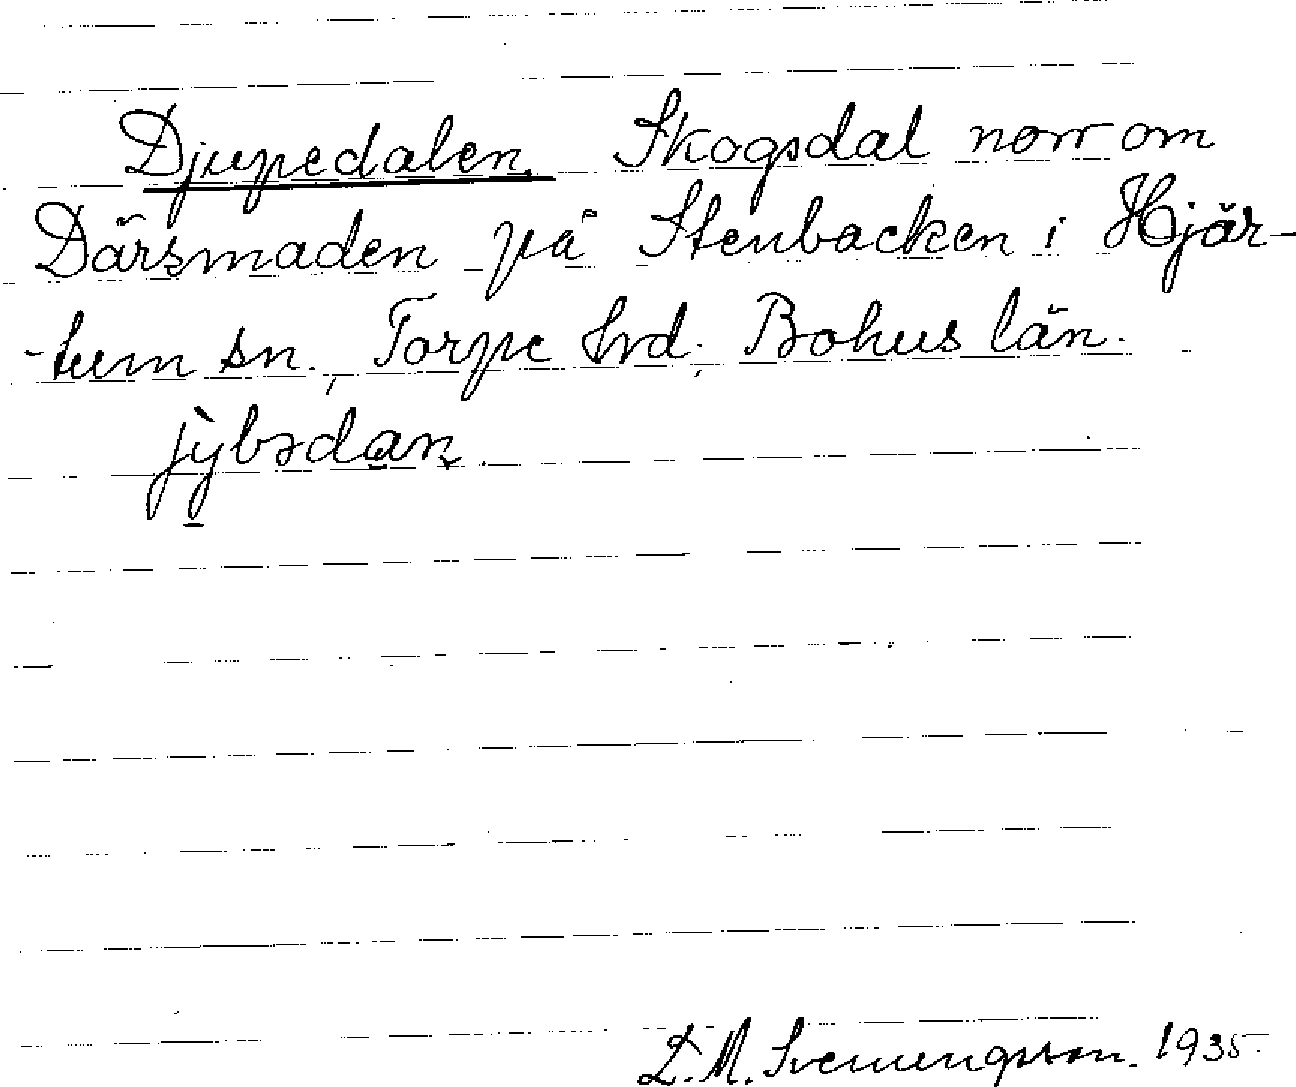 Djupedalen. Skogsdal norr om
Därsmaden på Stenbacken i Hjär-
-tum sn., Torpe hrd; Bohus län.
jỳ̠bəda̠n.
D. M. 1935.